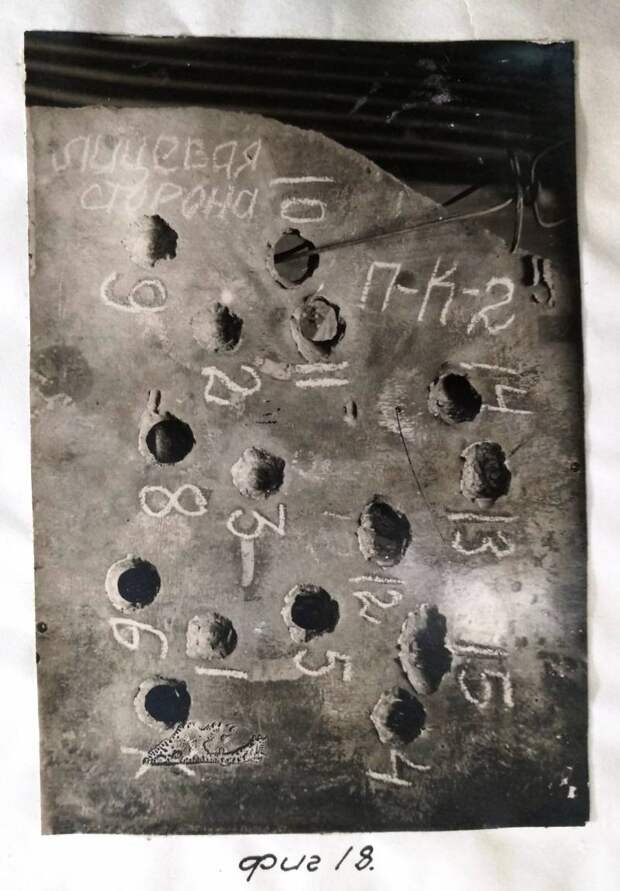 лицевая
сторона
10
П-К-2
9
2
11
14
8
3
13
12
6
1
5
15
4
фиг 18.